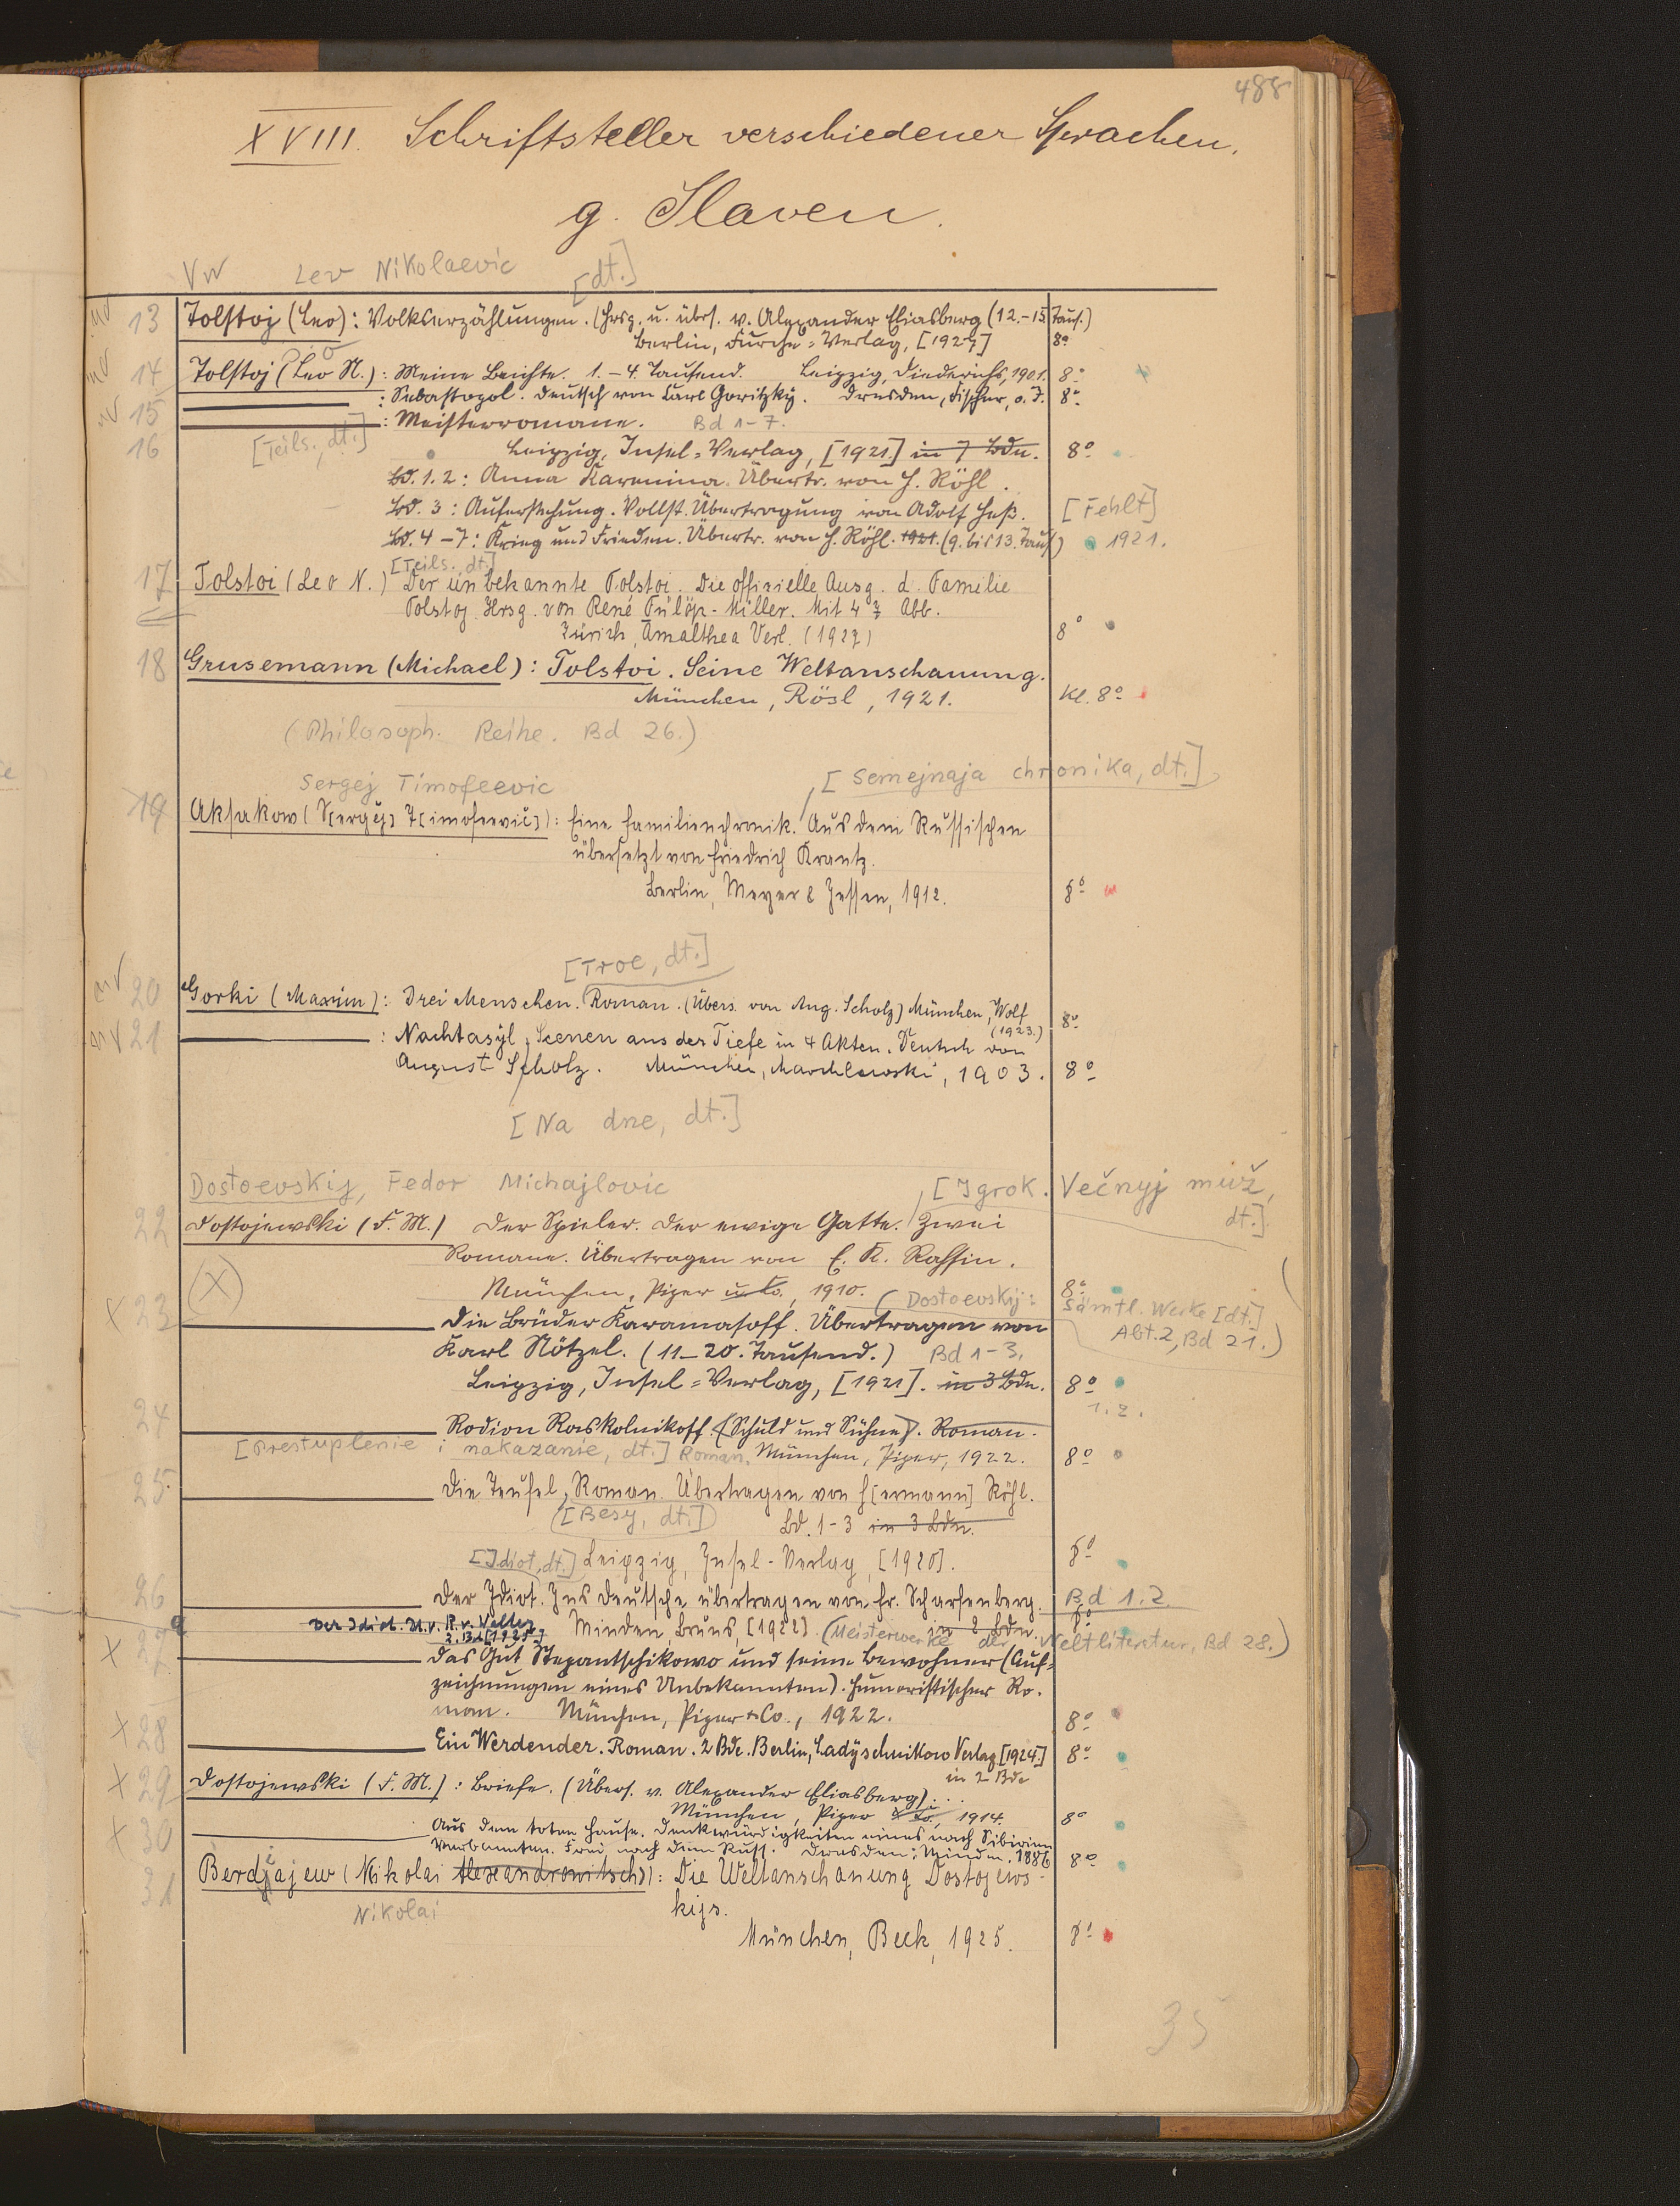 488
XVIII. Schriftsteller verschiedener Sprachen.
g. Slaven.
VW Lev Nikolaevic [dt.]
13 Tolstoj (Leo): Volkserzählungen. (Hrsg. u. übers. v. Alexander Eliasberg (12.-15. Taus.)
Berlin, Furche=Verlag, [1927] 8º
14 Tolstoj (Leo N.): Meine Beichte. 1.-4. Tausend. Leipzig, Diederichs, 1901. 8º
15 : Sebastopol. Deutsch von Carl Goritzky. Dresden, Fischer, o. J. 8º
16 : Meisterromane. Bd 1-7.
[Teils., dt.] Leipzig, Insel=Verlag, [1921.] in 7 Bdn. 8º
Bd. 1.2: Anna Karenina. Übertr. von H. Röhl.
Bd. 3: Auferstehung. Vollst. Übertragung von Adolf Heß. [Fehlt]
Bd. 4-7: Krieg und Frieden. Übertr. von H. Röhl. 1921. (9. bis 13. Taus.) 1921.
[Teils., dt.]
17 Tolstoi (Leo N.) Der unbekannte Tolstoi. Die offizielle Ausg. d. Familie
Tolstoj. Hrsg. von René Fülöp-Miller. Mit 47 Abb.
Zürich, Amalthea Verl. (1927) 8º
18 Grusemann (Michael): Tolstoi. Seine Weltanschauung.
München, Rösl, 1921. Kl. 8º
(Philosoph. Reihe. Bd 26.)
Sergej Timofeevic [Semejnaja chronika, dt.]
19 Aksakow (S[ergej] T[imofeevič]): Eine Familienchronik. Aus dem Russischen
übersetzt von Friedrich Krantz.
Berlin, Meyer & Jessen, 1912. 8º
[Troe, dt.]
20 Gorki (Maxim): Drei Menschen. Roman. (Übers. von Aug. Scholz) München, Wolf
(1923.) 8º
21 : Nachtasyl. Scenen aus der Tiefe in 4 Akten. Deutsch von
August Scholz. München, Marchlewski, 1903. 8º
[Na dne, dt.]
Dostoevskij, Fedor Michajlovic [Igrok. Večnyj muž,
dt.]
22 Dostojewski (F. M.) Der Spieler. Der ewige Gatte. Zwei
Romane. Übertragen von E. K. Rahsin.
(X) München, Piper u. Co., 1910. 8º
(Dostoevskij: Sämtl. Werke [dt.]
Abt. 2, Bd 21.)
x 23 Die Brüder Karamasoff. Übertragen von
Karl Nötzel. (11-20. Tausend.) Bd 1-3.
Leipzig, Insel=Verlag, [1921]. in 3 Bdn. 8º
1.2.
24 Rodion Raskolnikoff. (Schuld und Sühne). Roman.
[Prestuplenie i nakazanie, dt.] Roman. München, Piper, 1922. 8º
25. Die Teufel, Roman. Übertragen von H[ermann] Röhl.
[Besy, dt.] Bd. 1-3 in 3 Bdn.
[Idiot, dt.] Leipzig, Insel-Verlag, [1920]. 8º
26 Der Idiot. Ins Deutsche übertragen von Fr. Scharfenberg. Bd 1.2.
Minden, Bruns, [1922] in 2 Bdn. 8º
(Meisterwerke der Weltliteratur, Bd 28.)
a Der Idiot. U. v. R. v. Walter
2. Bd. [1925]
x 27 Das Gut Stepantschikowo und seine Bewohner (Auf=
zeichnungen eines Unbekannten). Humoristischer Ro.
man. München, Piper & Co., 1922. 8º
x 28 Ein Werdender. Roman. 2 Bde. Berlin, Ladyschnikow Verlag [1924.] 8º
in 2 Bde
x 29 Dostojewski (F. M.): Briefe. (Übers. v. Alexander Eliasberg)...
München, Piper & Co., 1914. 8º
x 30 Aus dem toten Hause. Denkwürdigkeiten eines nach Sibirien
Verbannten. Frei nach dem Russ. Dresden: Minden. 1886 8º
31 Berdjajew (Nikolai Alexandrowitsch)): Die Weltanschauung Dostojews-
Nikolai kijs.
München, Beck, 1925. 8º
35